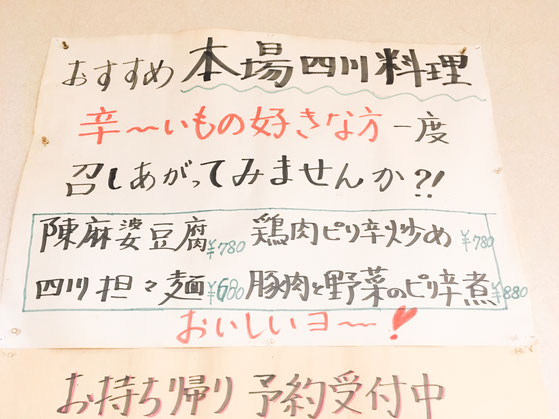 おすすめ 本場四川料理
辛〜いもの好きな方 一度
召しあがってみませんか?!
陳麻婆豆腐¥780 鶏肉ピリ辛炒め¥780
四川担々麺¥680 豚肉と野菜のピリ辛煮¥880
おいしいヨ〜!
お持ち帰り予約受付中